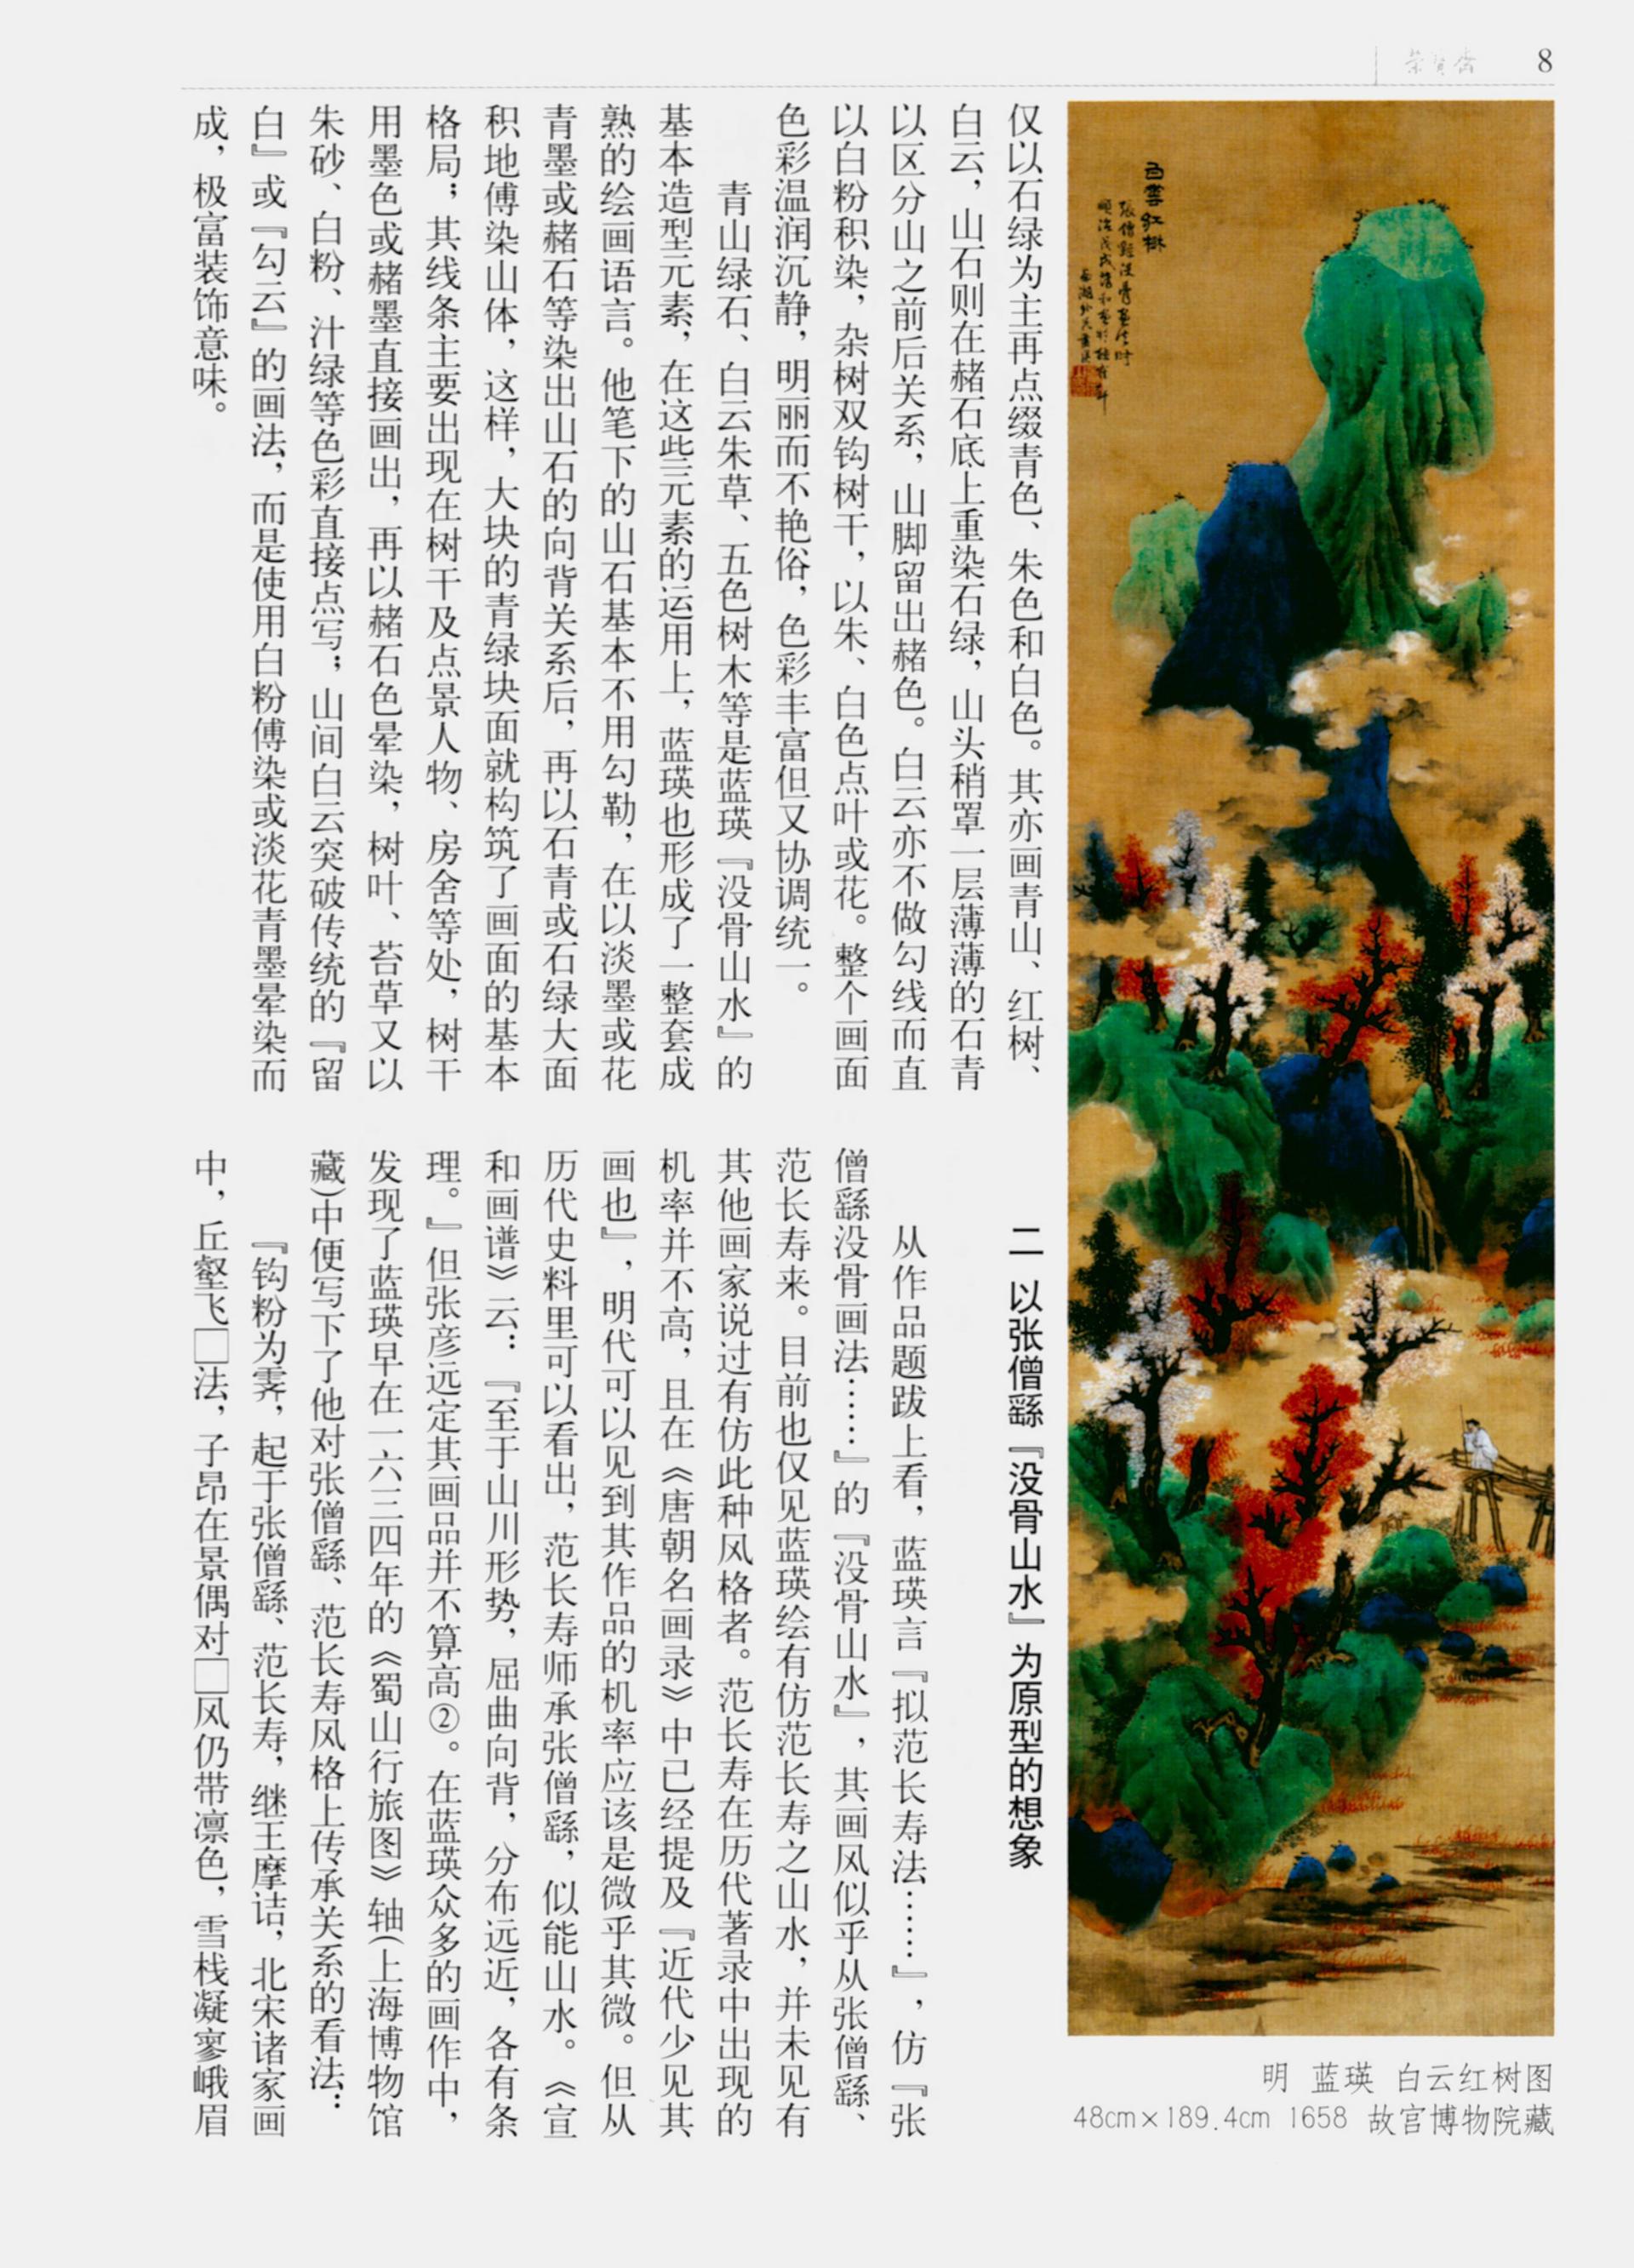 荣宝斋
8
白雲紅樹
张僧繇没骨画法时
仅以石绿为主再点缀青色、朱色和白色。其亦画青山、红树、
白云，山石则在赭石底上重染石绿，山头稍罩一层薄薄的石青
以区分山之前后关系，山脚留出赭色。白云亦不做勾线而直
以白粉积染，杂树双钩树干，以朱、白色点叶或花。整个画面
色彩温润沉静，明丽而不艳俗，色彩丰富但又协调统一。
青山绿石、白云朱草、五色树木等是蓝瑛『没骨山水』的
基本造型元素，在这些元素的运用上，蓝瑛也形成了一整套成
熟的绘画语言。他笔下的山石基本不用勾勒，在以淡墨或花
青墨或赭石等染出山石的向背关系后，再以石青或石绿大面
积地傅染山体，这样，大块的青绿块面就构筑了画面的基本
格局；其线条主要出现在树干及点景人物、房舍等处，树干
用墨色或赭墨直接画出，再以赭石色晕染，树叶、苔草又以
朱砂、白粉、汁绿等色彩直接点写；山间白云突破传统的『留
白』或『勾云』的画法，而是使用白粉傅染或淡花青墨晕染而
成，极富装饰意味。
二 以张僧繇『没骨山水』为原型的想象
从作品题跋上看，蓝瑛言『拟范长寿法……』，仿『张
僧繇没骨画法……』的『没骨山水』，其画风似乎从张僧繇、
范长寿来。目前也仅见蓝瑛绘有仿范长寿之山水，并未见有
其他画家说过有仿此种风格者。范长寿在历代著录中出现的
机率并不高，且在《唐朝名画录》中已经提及『近代少见其
画也』，明代可以见到其作品的机率应该是微乎其微。但从
历代史料里可以看出，范长寿师承张僧繇，似能山水。《宣
和画谱》云：『至于山川形势，屈曲向背，分布远近，各有条
理。』但张彦远定其画品并不算高②。在蓝瑛众多的画作中，
发现了蓝瑛早在一六三四年的《蜀山行旅图》轴(上海博物馆
藏)中便写下了他对张僧繇、范长寿风格上传承关系的看法：
『钩粉为霁，起于张僧繇、范长寿，继王摩诘，北宋诸家画
中，丘壑飞□法，子昂在景偶对□风仍带凛色，雪栈凝寥峨眉
明 蓝瑛 白云红树图
48cm×189.4cm 1658 故宫博物院藏